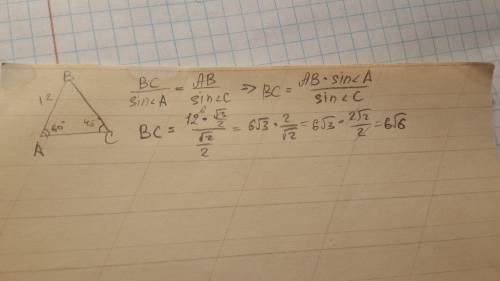 B
12
60°
45
A
C
BC/sin<A = AB/sin<C => BC = AB · sin<A/sin<C
BC = 12⁶ · √3/2/√2/2 = 6√3 · 2/√2 = 6√3 · 2√2/2 = 6√6